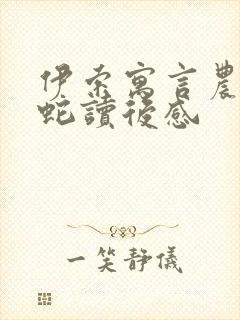 伊索寓言農
蛇讀後感
一笑靜儀